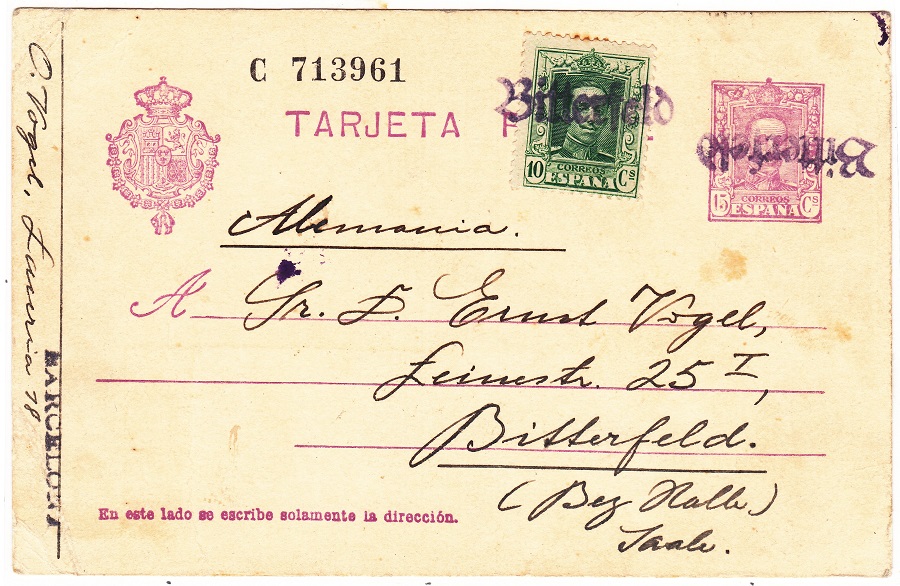 C 713961
TARJETA P
Bitterfeld
10 CORREOS Cs
ESPAÑA
Bitterfeld
15 CORREOS Cs
ESPAÑA
Alemania.
A Sr. D. Ernst Vogel,
25 I,
Bitterfeld.
(Bez Halle)
Saale.
En este lado se escribe solamente la dirección.
O. Vogel, Lauria 78
BARCELONA